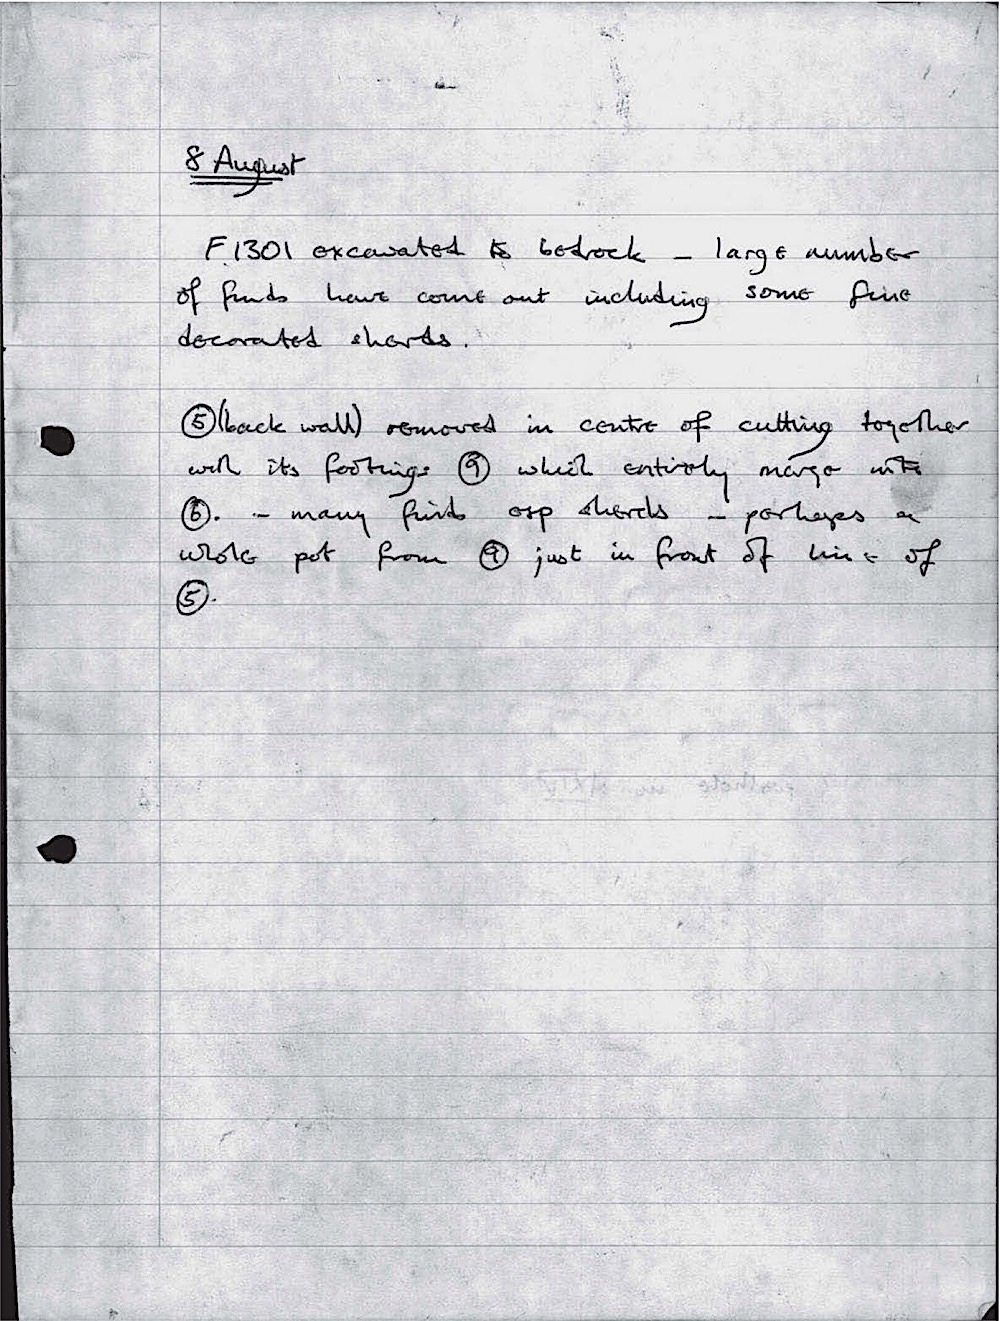 8 August
F.1301 excavated to bedrock – large number
of finds have come out including some fine
decorated sherds.
⑤ (back wall) removed in centre of cutting together
with its footings ⑨ which entirely merge into
⑥. – many finds esp sherds – perhaps a
whole pot from ⑨ just in front of line of
⑤.